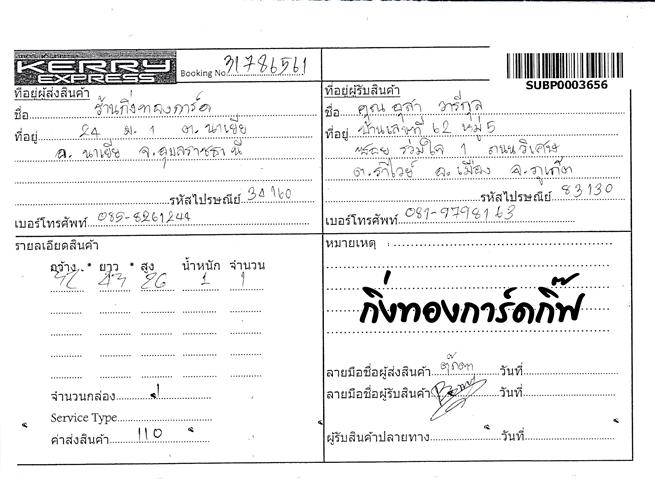 KERRY
EXPRESS
Booking No. 31786561
SUBP0003656
ที่อยู่ผู้ส่งสินค้า
ชื่อ ร้านกิ่งทองการ์ด
ที่อยู่ 24 ม. 1 ต. นาเยีย
อ. นาเยีย จ. อุบลราชธานี
รหัสไปรษณีย์ 34160
เบอร์โทรศัพท์ 085-8261244
ที่อยู่ผู้รับสินค้า
ชื่อ คุณ อุสา วารีกุล
ที่อยู่ บ้านเลขที่ 62 หมู่ 5
ซอย ร่วมใจ 1 ถนนวิเศษ
ต. ราไวย์ อ. เมือง จ. ภูเก็ต
รหัสไปรษณีย์ 83130
เบอร์โทรศัพท์ 081-9798163
รายละเอียดสินค้า
กว้าง * ยาว * สูง น้ำหนัก จำนวน
43 26 1 1
จำนวนกล่อง 1
Service Type
ค่าส่งสินค้า 110
หมายเหตุ :
กิ่งทองการ์ดกิ๊ฟ
ลายมือชื่อผู้ส่งสินค้า วันที่
ลายมือชื่อผู้รับสินค้า วันที่
ผู้รับสินค้าปลายทาง วันที่